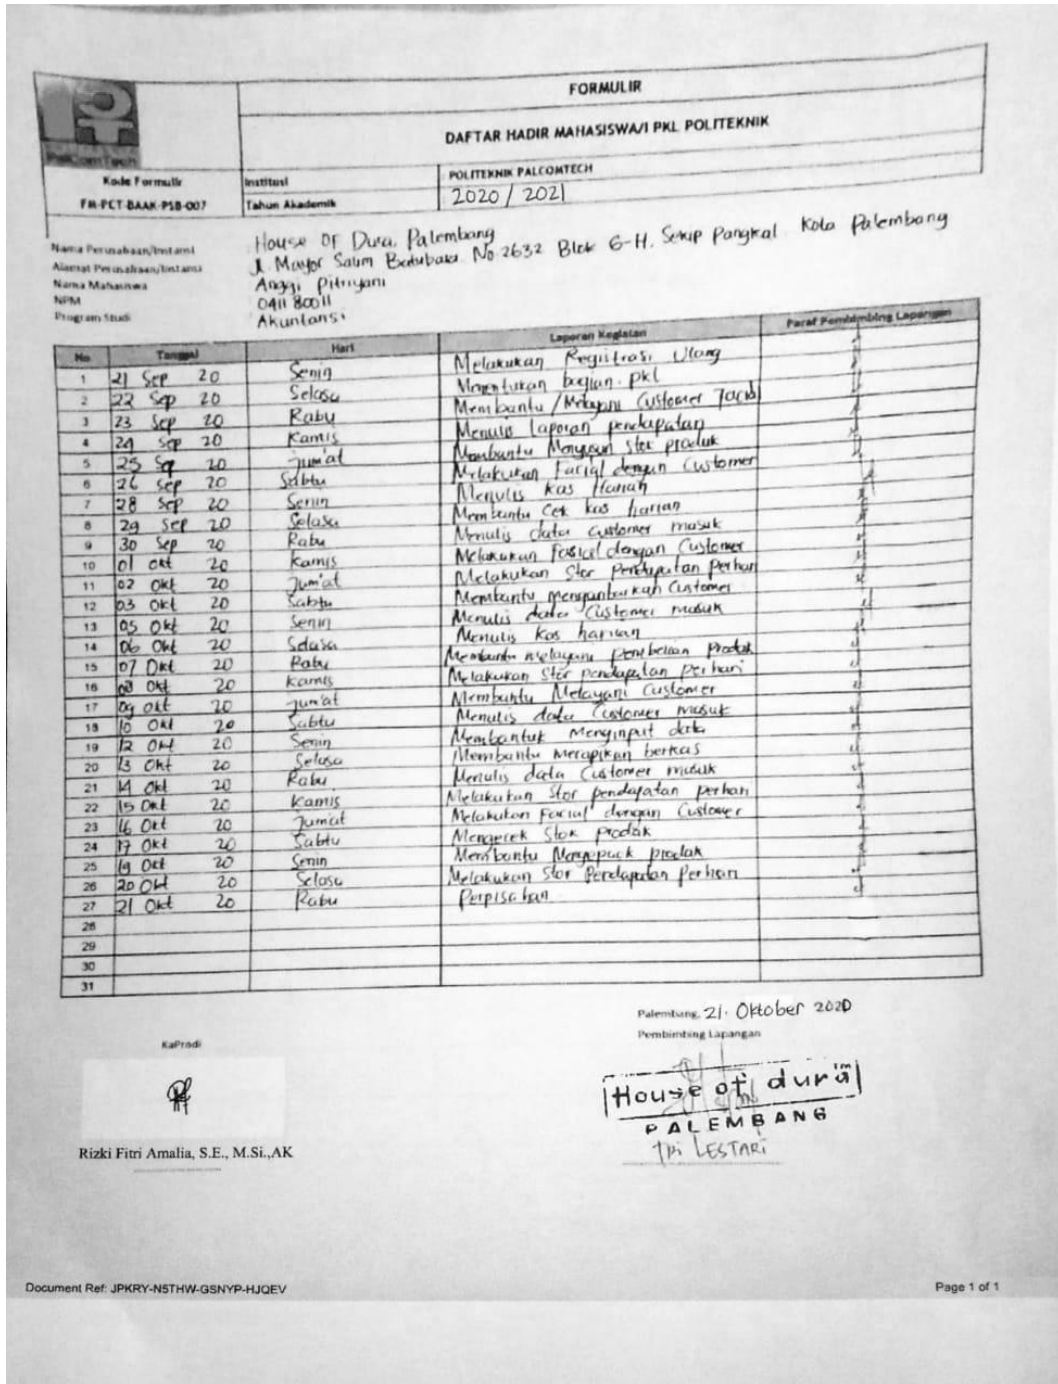 FORMULIR
DAFTAR HADIR MAHASISWA/I PKL POLITEKNIK
PalComTech
Kode Formulir
FM-PCT-BAAK-PSB-007
Institusi
POLITEKNIK PALCOMTECH
Tahun Akademik
2020 / 2021
Nama Perusahaan/Instansi : House OF Dura Palembang
Alamat Perusahaan/Instansi Jl. Mayor Salim Batubara No.2632 Blok G-H. Sekip Pangkal Kota Palembang
Nama Mahasiswa Anggi Pitriyani
NPM 041180011
Program Studi Akuntansi
No Tanggal Hari Laporan Kegiatan Paraf Pembimbing Lapangan
1 21 Sep 20 Senin Melakukan Registrasi Ulang
2 22 Sep 20 Selasa Menentukan bagian pkl
3 23 Sep 20 Rabu Membantu/Melayani Customer Facial
4 24 Sep 20 Kamis Menulis laporan pendapatan
5 25 Sep 20 Jum'at Membantu Menyusun Stok produk
6 26 Sep 20 Sabtu Melakukan Facial dengan Customer
7 28 Sep 20 Senin Menulis kas Harian
8 29 Sep 20 Selasa Membantu Cek kas harian
9 30 Sep 20 Rabu Menulis data customer masuk
10 01 Okt 20 Kamis Melakukan Facial dengan Customer
11 02 Okt 20 Jum'at Melakukan Stor Pendapatan Perhari
12 03 Okt 20 Sabtu Membantu Customer
13 05 Okt 20 Senin Menulis data Customer masuk
14 06 Okt 20 Selasa Menulis kas harian
15 07 Okt 20 Rabu Membantu melayani pembelian Prodak
16 08 Okt 20 Kamis Melakukan Stor pendapatan perhari
17 09 Okt 20 Jum'at Membantu Melayani Customer
18 10 Okt 20 Sabtu Menulis data Customer masuk
19 12 Okt 20 Senin Membantuk Menginput data
20 13 Okt 20 Selasa Membantu Merapikan berkas
21 14 Okt 20 Rabu Menulis data Customer masuk
22 15 Okt 20 Kamis Melakukan Stor pendapatan perhari
23 16 Okt 20 Jum'at Melakukan Facial dengan Customer
24 17 Okt 20 Sabtu Mengecek Stok prodak
25 19 Okt 20 Senin Membantu Mengepack prodak
26 20 Okt 20 Selasa Melakukan Stor Pendapatan Perhari
27 21 Okt 20 Rabu Perpisahan
28
29
30
31
Palembang, 21. Oktober 2020
KaProdi
Pembimbing Lapangan
House of dura
PALEMBANG
Rizki Fitri Amalia, S.E., M.Si.,AK
TRI LESTARI
Document Ref: JPKRY-N5THW-GSNYP-HJQEV
Page 1 of 1